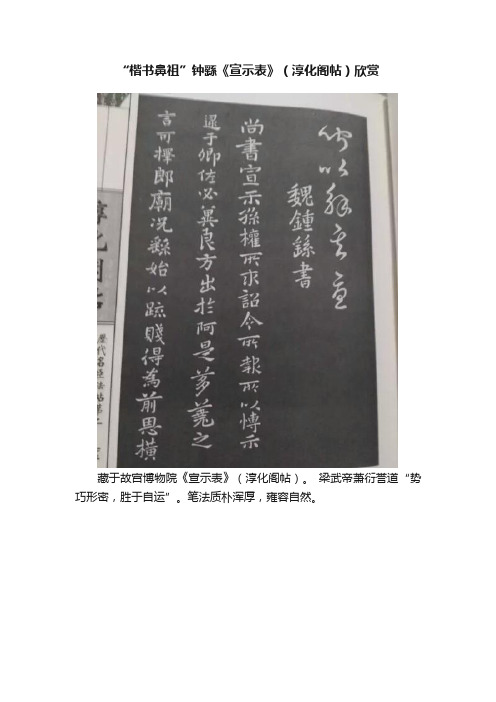 “楷书鼻祖”钟繇《宣示表》（淳化阁帖）欣赏
魏鍾繇書
尚書宣示孫權所求詔令所報所以慱示
逮于卿佐必冀良方出於阿是芻蕘之
言可擇郎廟況繇始以疏賤得為前恩橫
歷代名臣法帖第二
藏于故宫博物院《宣示表》（淳化阁帖）。 梁武帝萧衍誉道“势
巧形密，胜于自运”。笔法质朴浑厚，雍容自然。